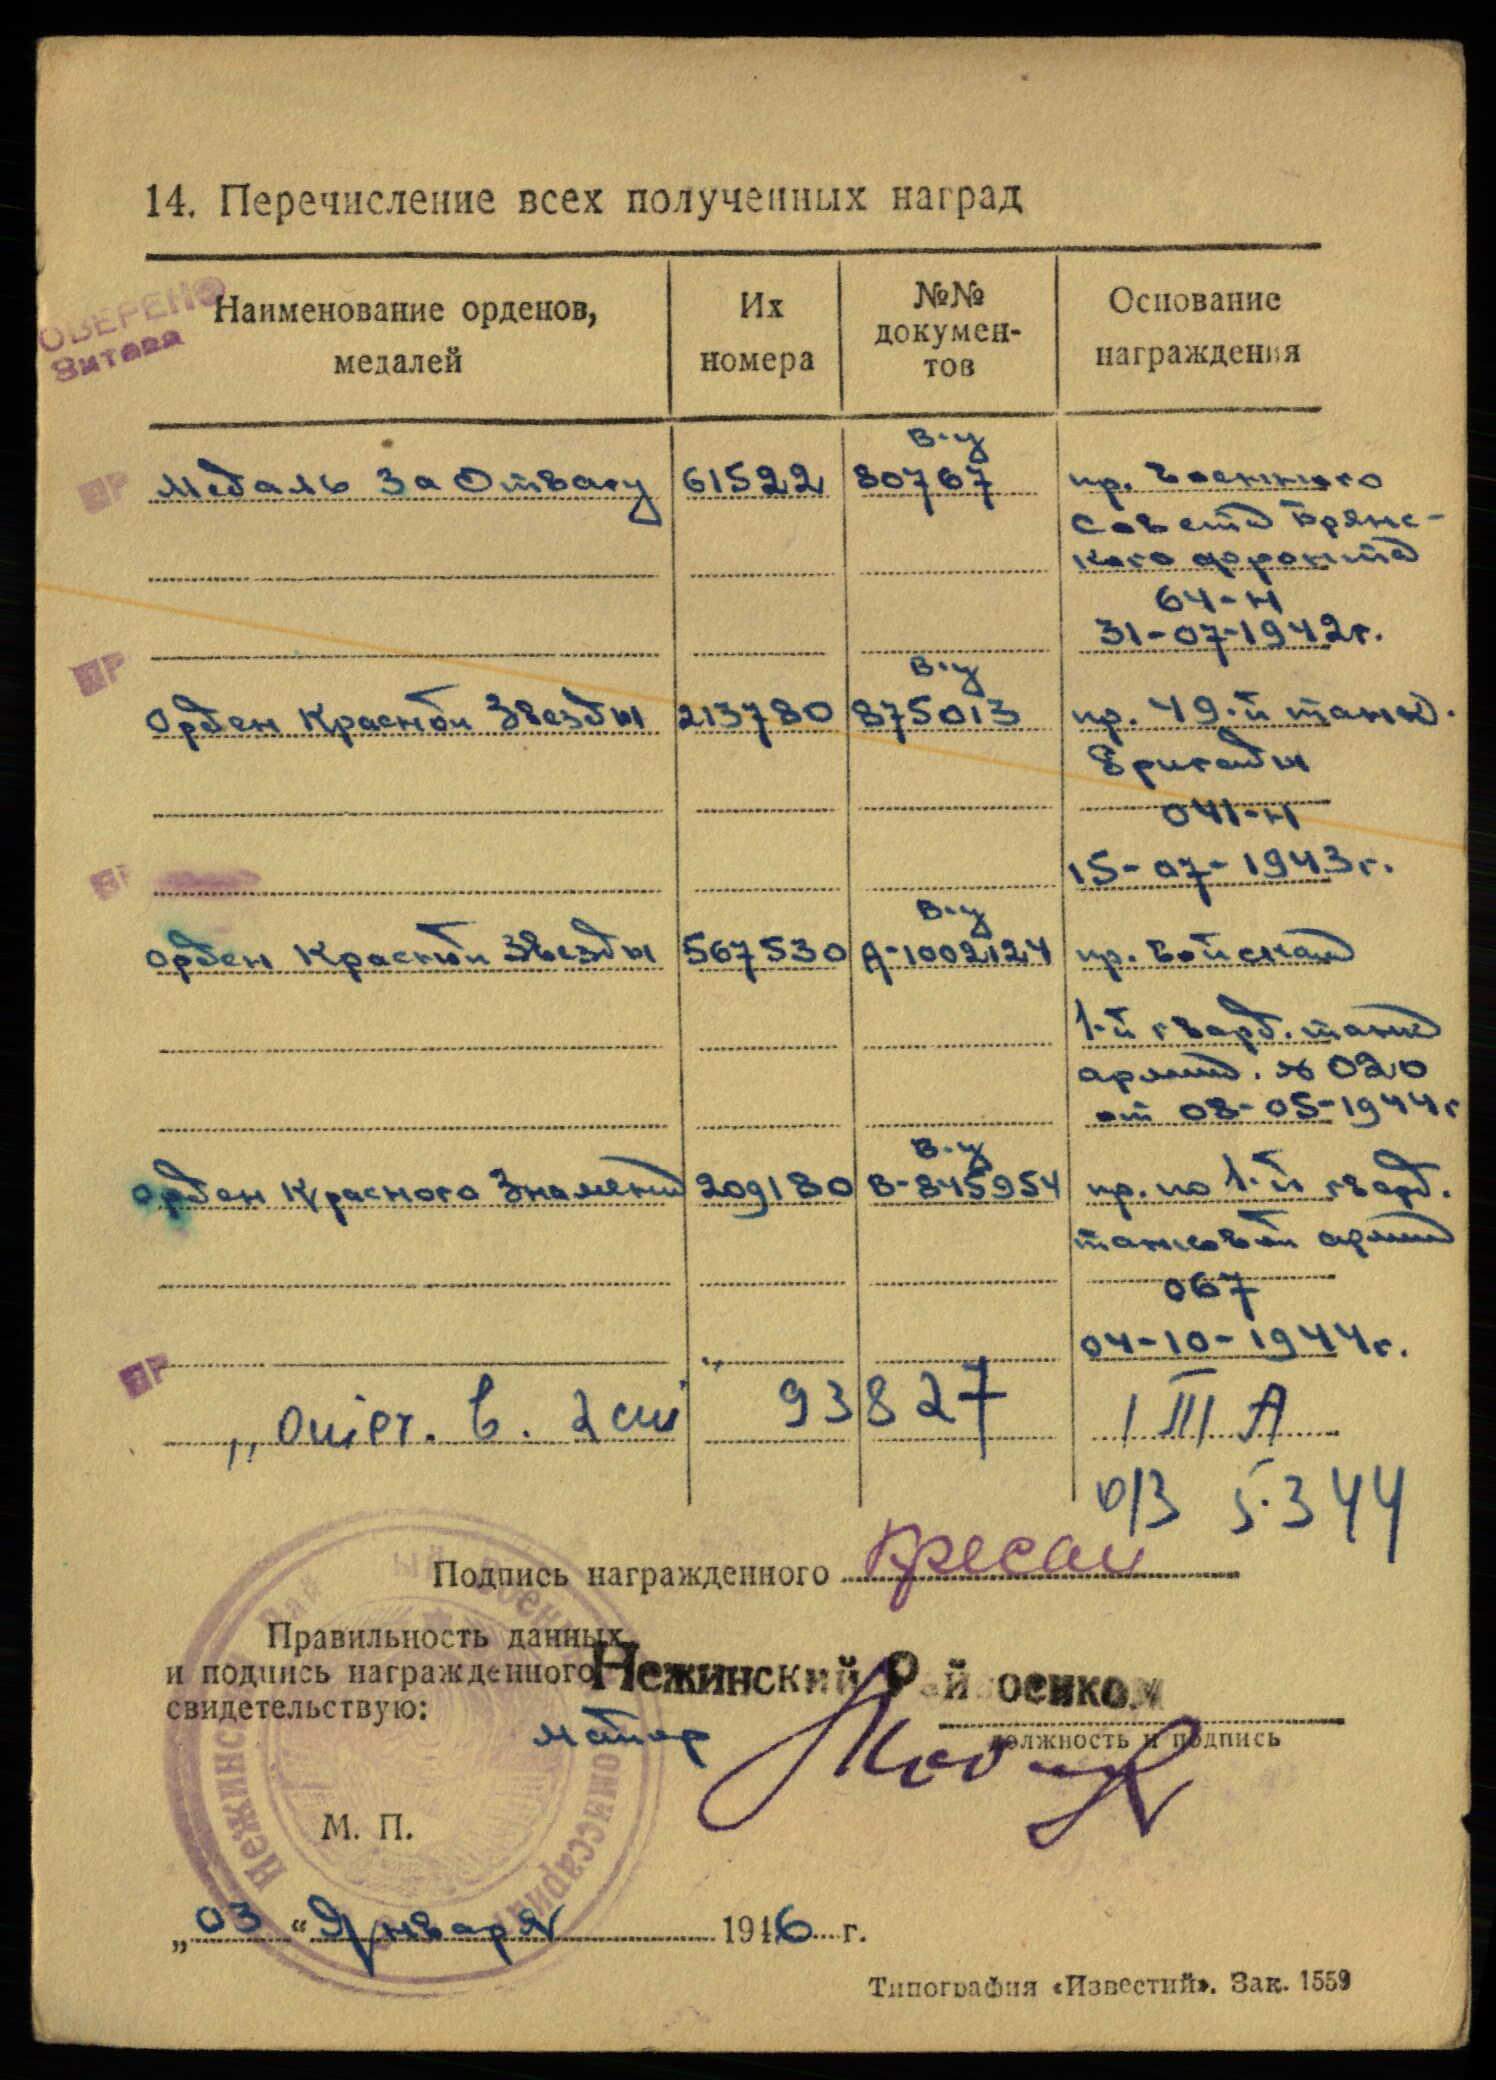 14. Перечисление всех полученных наград
ОВЕРЕНО
Наименование орденов,
медалей
Их
номера
№№
докумен-
тов
Основание
награждения
в-у
Медаль За Отвагу 61522 80767 пр. Военного
Совета Брянс-
кого фронта
64-н
31-07-1942г.
в-у
Орден Красной Звезды 213780 875013 пр. 49-й танк.
бригады
041-н
15-07-1943г.
в-у
Орден Красной Звезды 567530 А-1002124 пр. войскам
1-й гвард. танк
армии. № 020
от 08-05-1944г
в-у
Орден Красного Знамени 209180 В-845954 пр. по 1-й гвард.
танковой армии
067
04-10-1944г.
„Отеч. в. 2 ст" 93827 1 ТА
5.3 44
Подпись награжденного
Правильность данных
и подпись награжденного
свидетельствую:
Нежинский Райвоенком
майор
должность и подпись
М. П.
„03 “ Января 1946 г.
Типография «Известий». Зак. 1559